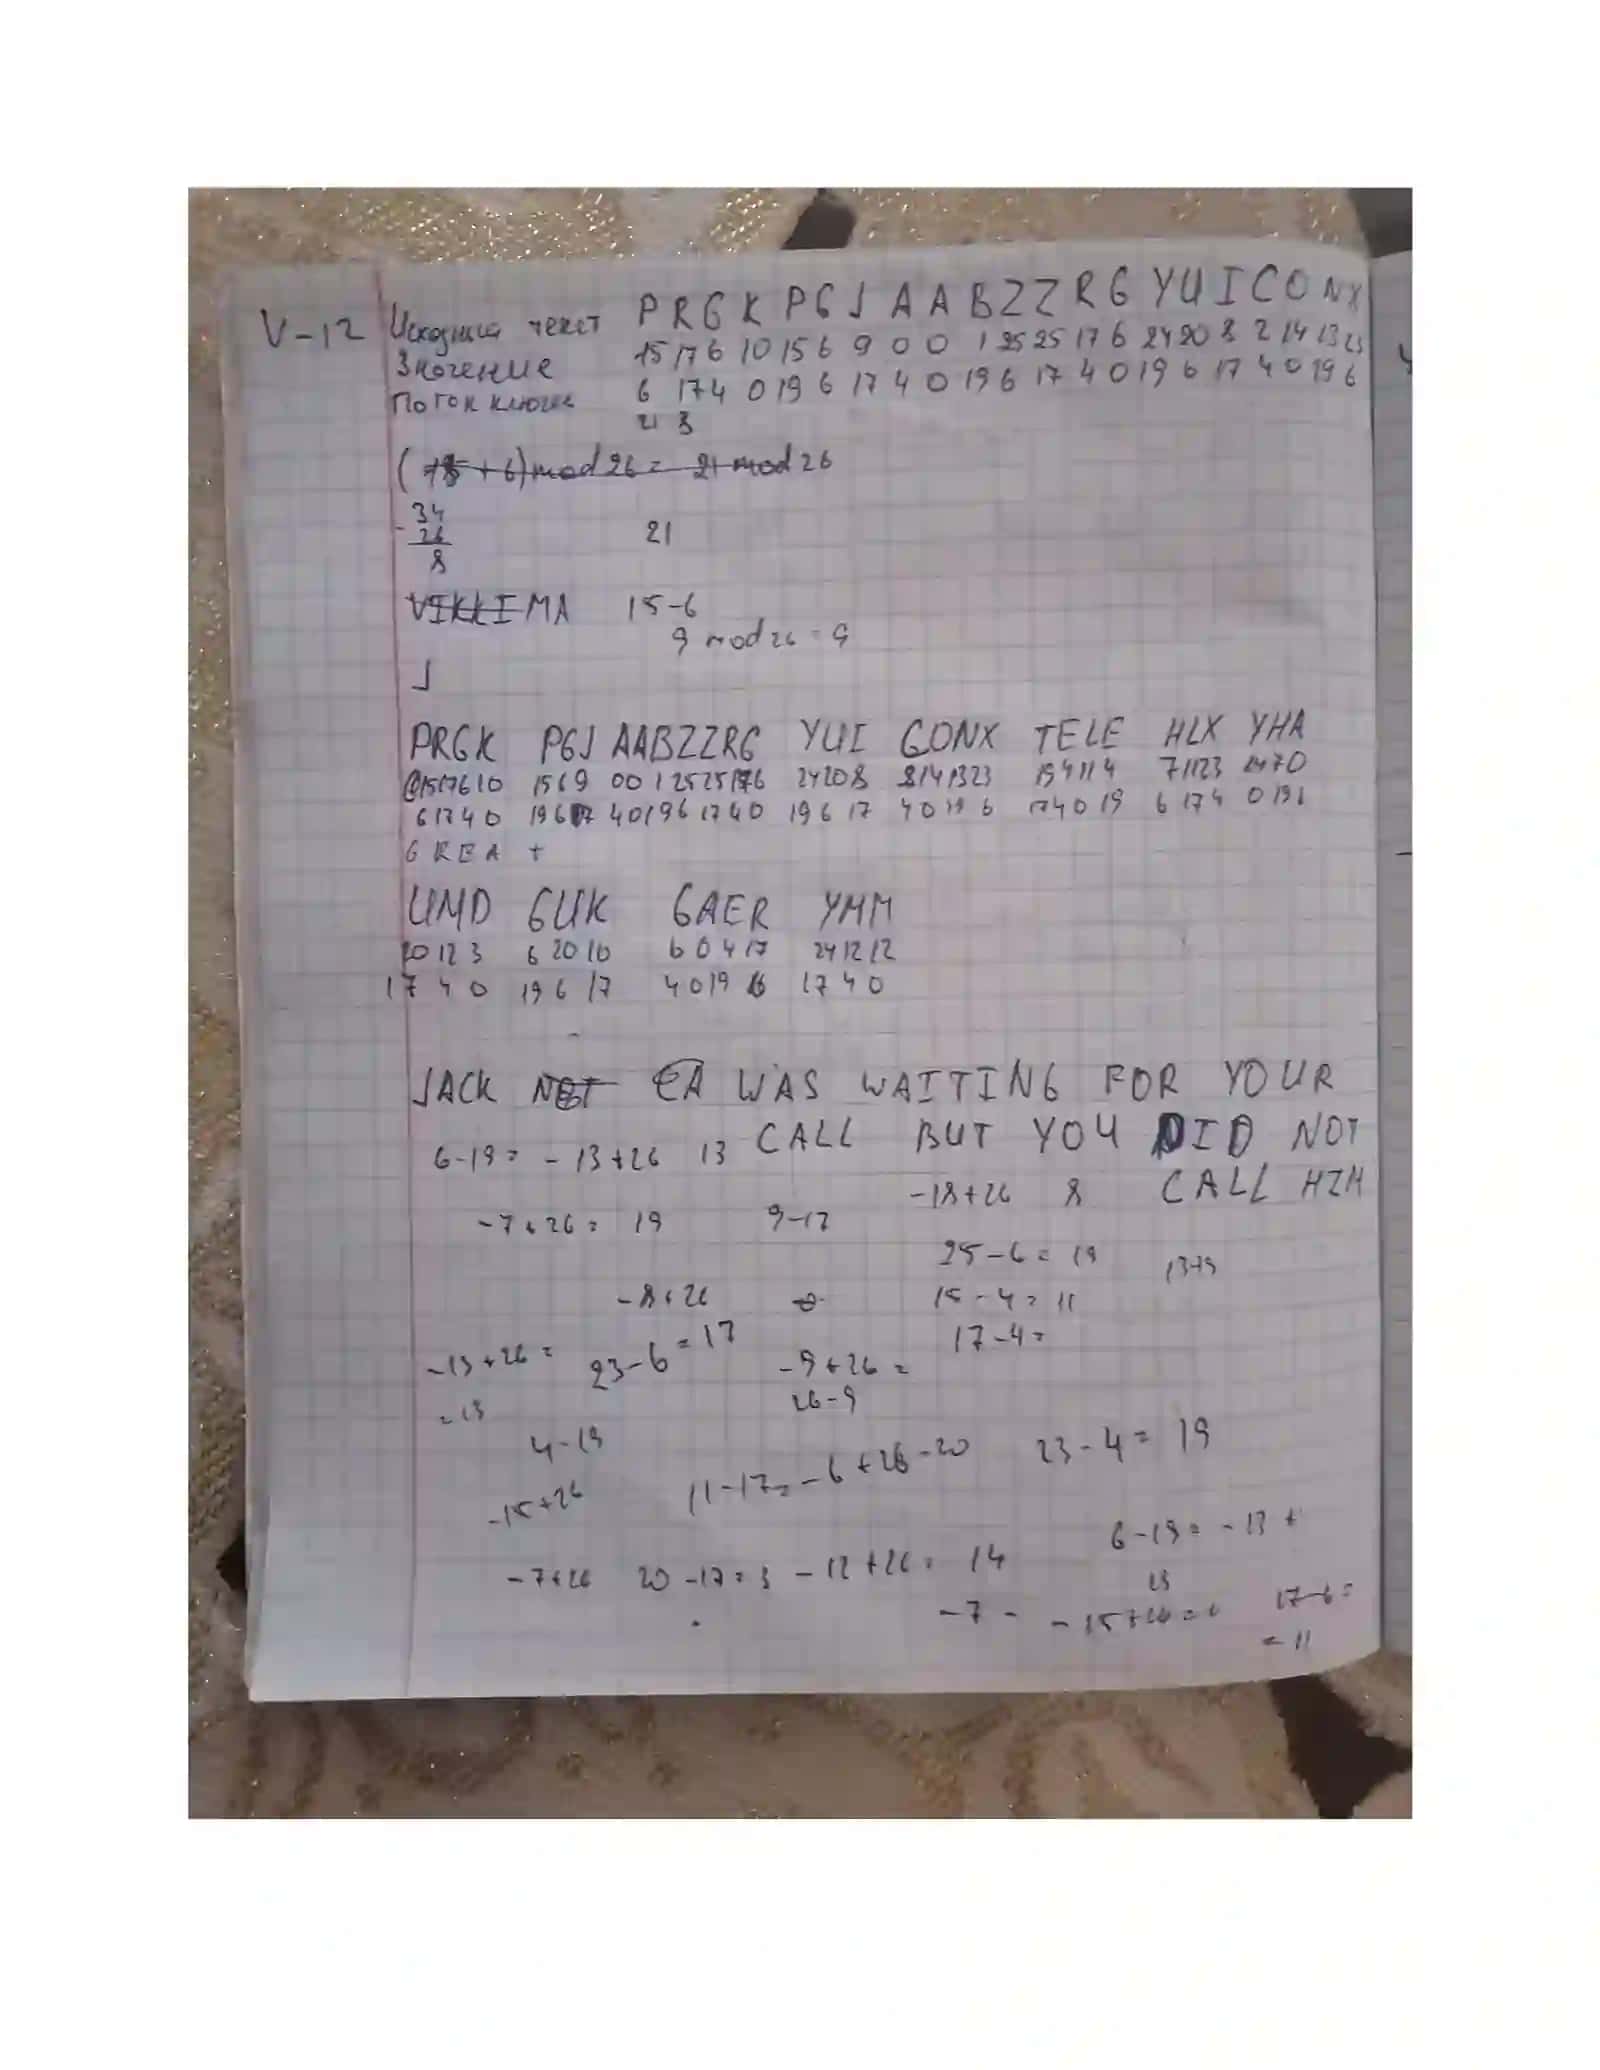 V-12 Исходный текст PRGK PGJ AABZZRG YUICONX
Значение 15 17 6 10 15 6 9 0 0 1 25 25 17 6 24 20 8 2 14 13 23
Поток ключа 6 17 4 0 19 6 17 4 0 19 6 17 4 0 19 6 17 4 0 19 6
21 3
(15 + 6) mod 26 = 21 mod 26
- 34
26
8
21
VIKKIMA 15-6
9 mod 26 = 9
J
PRGK PGJ AABZZRG YUI GONX TELE HLX YHA
15 17 6 10 15 6 9 0 0 1 25 25 17 6 24 20 8 8 14 13 23 19 4 11 4 7 11 23 24 7 0
6 17 4 0 19 6 17 4 0 19 6 17 4 0 19 6 17 4 0 19 6 17 4 0 19 6 17 4 0 19 6
G R E A T
UMD GUK GAER YMM
20 12 3 6 20 10 6 0 4 17 24 12 12
17 4 0 19 6 17 4 0 19 6 17 4 0
JACK WAS WAITING FOR YOUR
CALL BUT YOU DID NOT
6-19= -13+26 13
CALL HIM
-18+26 8
-7+26= 19 9-17
25-6= 19
-8+26 15-4= 11
17-4=
-13+26= 23-6=17 -9+26=
=13 26-9
4-19
-15+26 11-17=-6+26=20 23-4= 19
6-19= -13+
-7+26 20-17=3 -12+26= 14
13
-7- -15+26= 17-6=
= 11